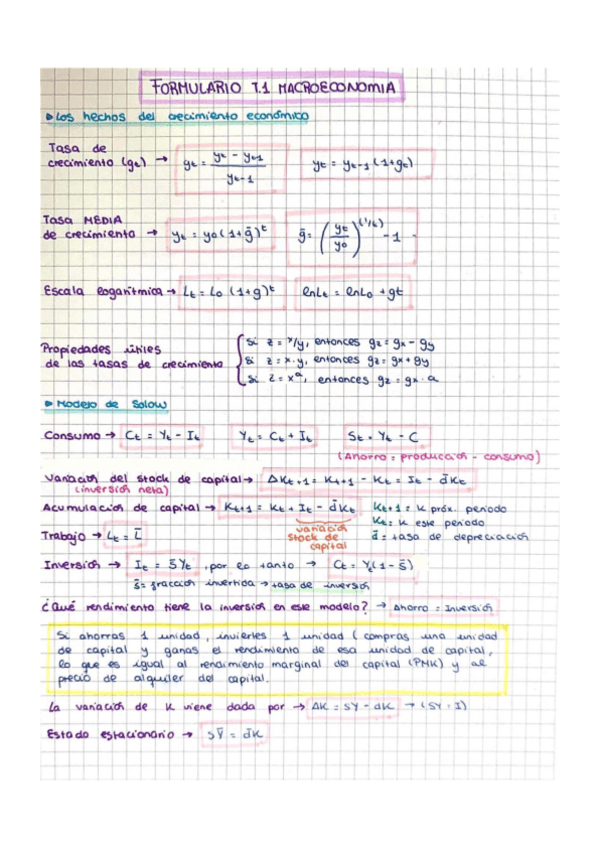 FORMULARIO T.1 MACROECONOMIA
▸ Los hechos del crecimiento económico
Tasa de
crecimiento (gt) → gt = (yt - yt-1) / yt-1    yt = yt-1 (1+gt)
Tasa MEDIA
de crecimiento → yt = y0 (1+ḡ)^t    ḡ = (yt/y0)^(1/t) - 1
Escala logarítmica → Lt = L0 (1+g)^t    lnLt = lnL0 + gt
Propiedades útiles
de las tasas de crecimiento
Si z = x/y, entonces gz = gx - gy
Si z = x·y, entonces gz = gx + gy
Si z = x^a, entonces gz = gx · a
▸ Modelo de Solow
Consumo → Ct = Yt - It    Yt = Ct + It    St = Yt - C
(Ahorro = producción - consumo)
Variación del stock de capital → ΔKt+1 = Kt+1 - Kt = It - d̄Kt
(inversión neta)
Acumulación de capital → Kt+1 = Kt + It - d̄Kt    Kt+1 = K próx. periodo
variación stock de capital
Kt = K este periodo
d̄ = tasa de depreciación
Trabajo → Lt = L̄
Inversión → It = s̄Yt, por lo tanto → Ct = Yt(1 - s̄)
s̄ = fracción invertida → tasa de inversión
¿Qué rendimiento tiene la inversión en este modelo? → Ahorro = Inversión
Si ahorras 1 unidad, inviertes 1 unidad (compras una unidad
de capital y ganas el rendimiento de esa unidad de capital,
lo que es igual al rendimiento marginal del capital (PMK) y al
precio de alquiler del capital.
La variación de K viene dada por → ΔK = SY - dK → (SY = I)
Estado estacionario → SȲ = d̄K